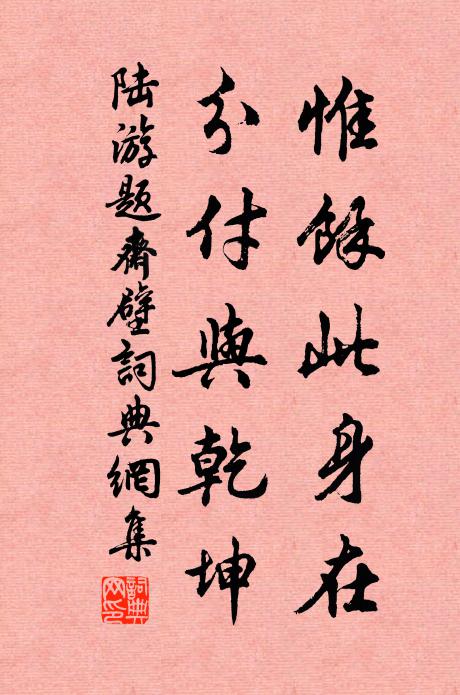 惟餘此身在
分付與乾坤
陆游题齋壁詞典網集
詞典網印